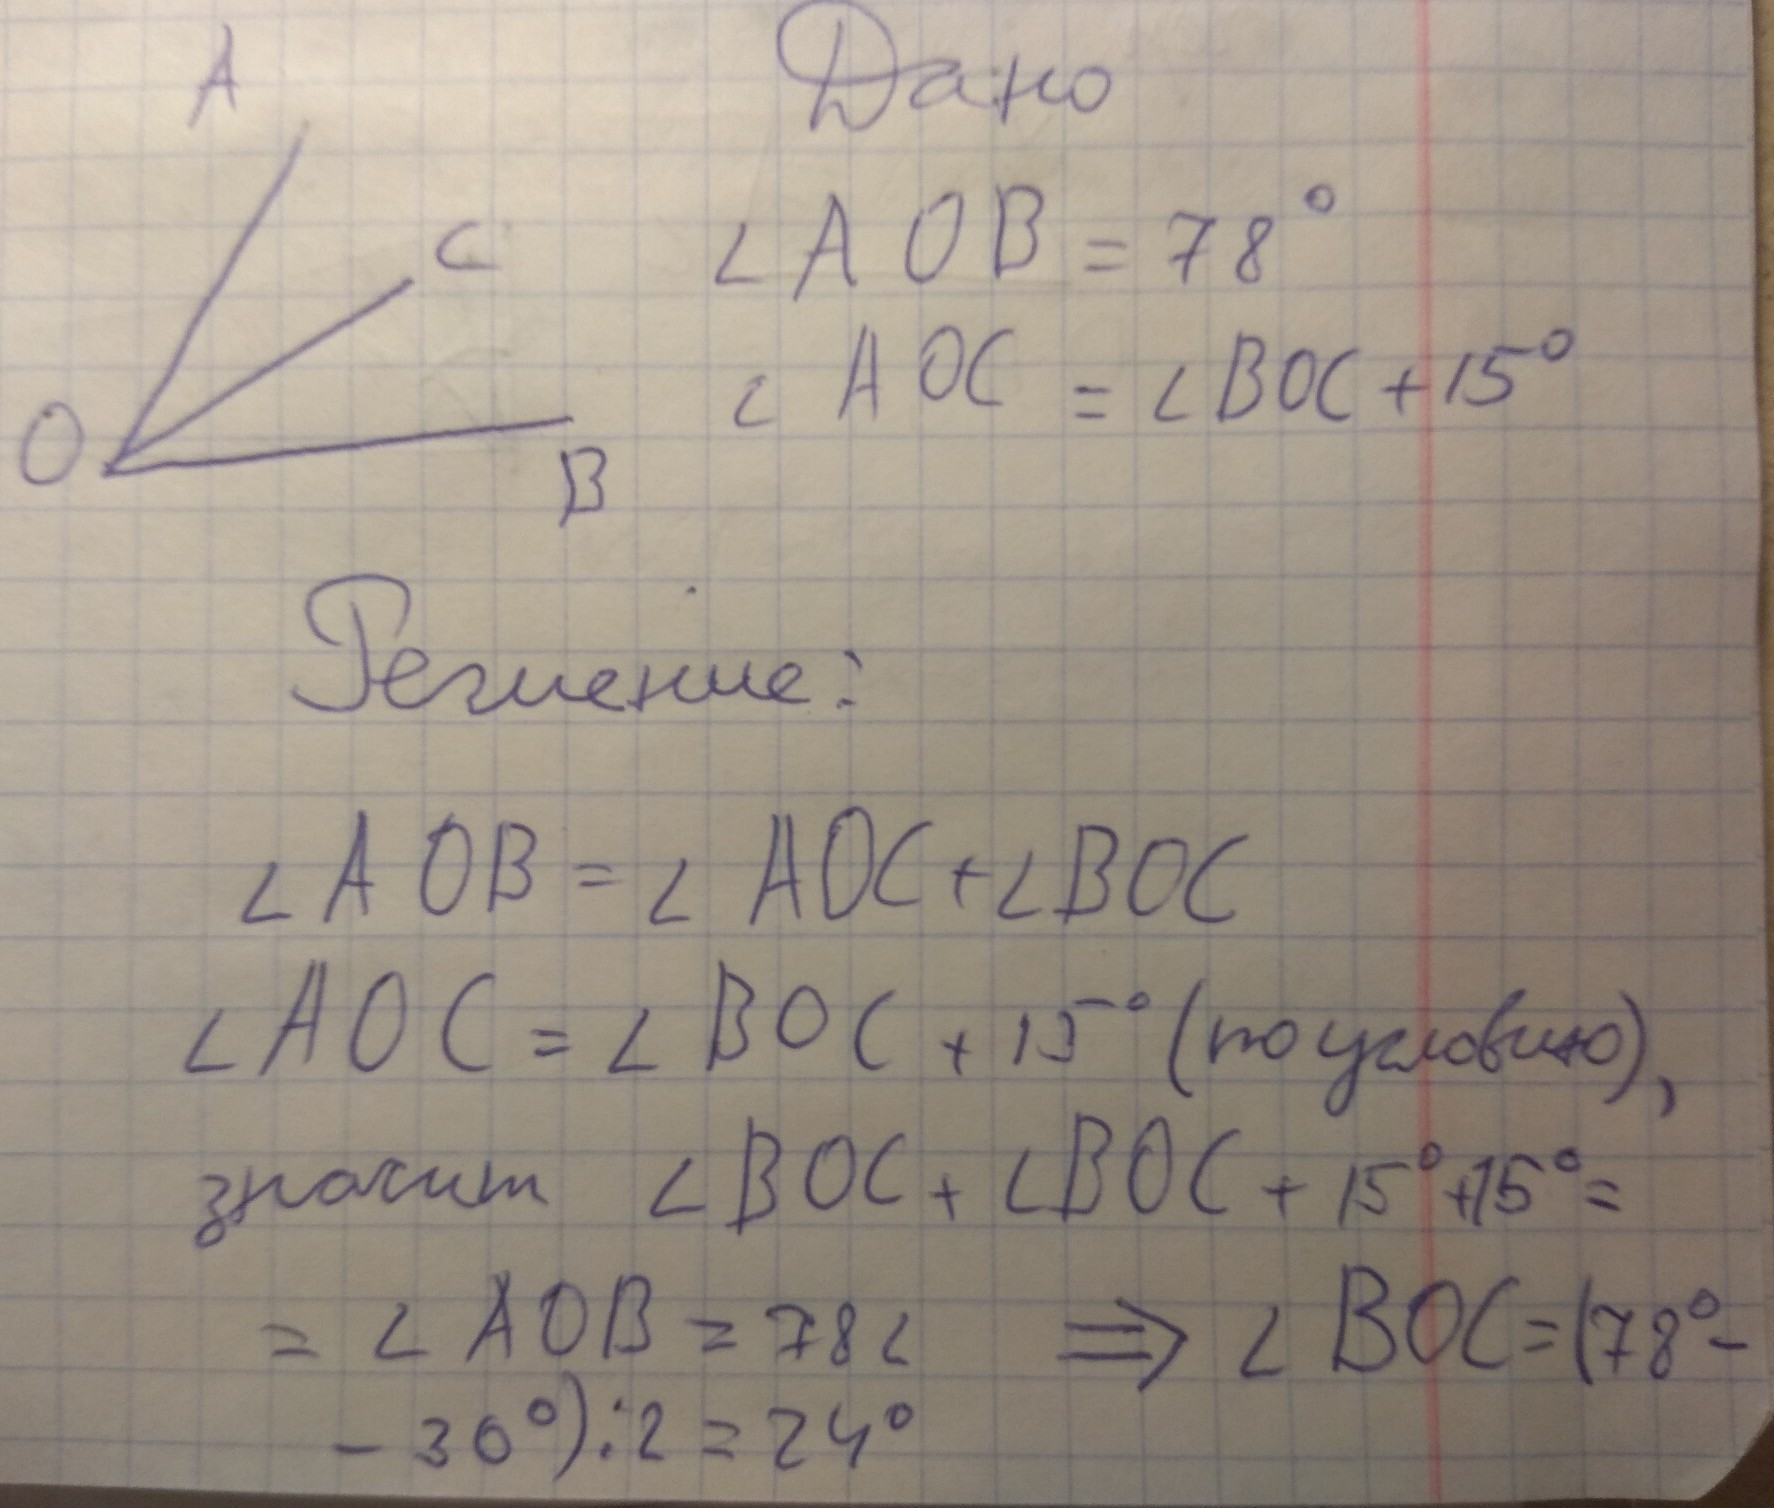 A
Дано
C
∠AOB = 78°
∠AOC = ∠BOC + 15°
O
B
Решение:
∠AOB = ∠AOC + ∠BOC
∠AOC = ∠BOC + 15° (по условию),
значит ∠BOC + ∠BOC + 15° + 15° =
= ∠AOB = 78∠ ⇒ ∠BOC = (78° -
- 30°) : 2 = 24°